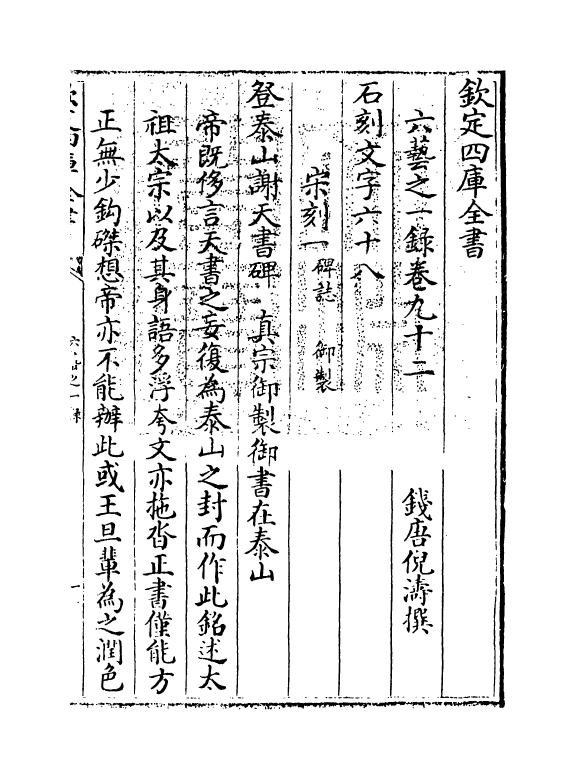 欽定四庫全書
六藝之一錄卷九十二
錢唐倪濤撰
石刻文字六十八
宋刻一 碑誌 御製
登泰山謝天書碑 真宗御製御書在泰山
帝既侈言天書之妄復為泰山之封而作此銘述太
祖太宗以及其身語多浮夸文亦拖沓正書僅能方
正無少鈎磔想帝亦不能辦此或王旦輩為之潤色